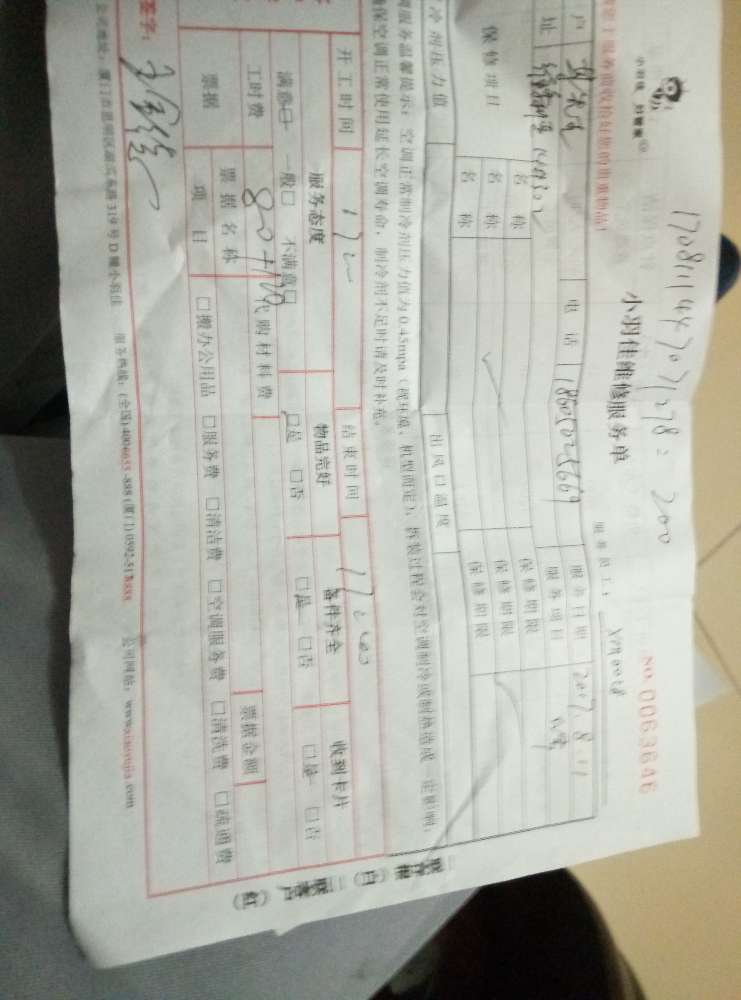 小羽佳 好管家
1708111447071278= 200
小羽佳维修服务单
NO. 0063646
服务员工:
户
电 话
18605025669
服务日期
2017.8.11
址
服务项目
保修项目
名 称
保修期限
名 称
保修期限
名 称
保修期限
冷剂压力值
出风口温度
调服务温馨提示:空调正常制冷剂压力值为0.45mpa(视环境、机型而定),拆装过程会对空调制冷或制热造成一定影响,
保空调正常使用延长空调寿命,制冷剂不足时请及时补充。
开工时间
结束时间
服务态度 物品完好 备件齐全 收到卡片
满意□ 一般□ 不满意□ □是 □否 □是 □否 □是 □否
工时费
80+120
代购材料费
票据
票据名称
票据金额
项 目
□搬办公用品 □服务费 □清洁费 □空调服务费 □清洗费 □疏通费
签字:
公司地址:厦门市思明区 319号D幢小羽佳 服务热线:(全国)4006655-888 (厦门)0592-518888 公司网站:www.xiaoyujia.com